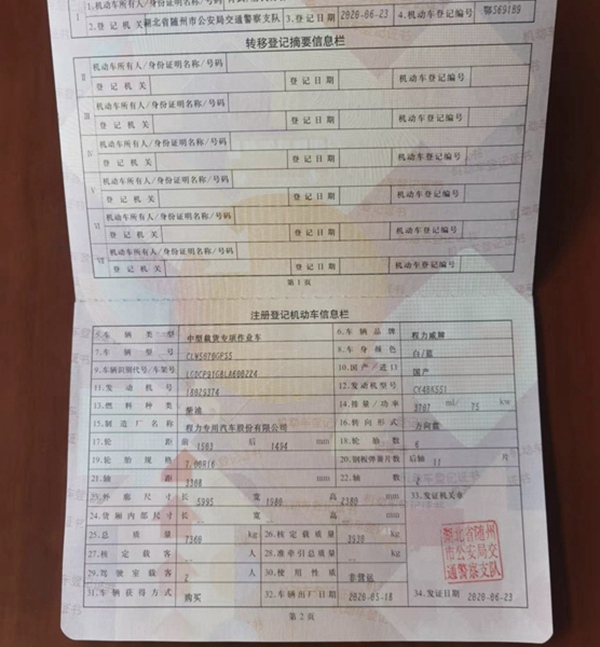 1.机动车所有人/身份证明名称/号码
I 2.登 记 机 关 湖北省随州市公安局交通警察支队 3.登记日期 2020-06-23 4.机动车登记编号 鄂S69189
转移登记摘要信息栏
II 机动车所有人/身份证明名称/号码
登 记 机 关 登 记 日 期 机动车登记编号
III 机动车所有人/身份证明名称/号码
登 记 机 关 登 记 日 期 机动车登记编号
IV 机动车所有人/身份证明名称/号码
登 记 机 关 登 记 日 期 机动车登记编号
V 机动车所有人/身份证明名称/号码
登 记 机 关 登 记 日 期 机动车登记编号
VI 机动车所有人/身份证明名称/号码
登 记 机 关 登 记 日 期 机动车登记编号
VII 机动车所有人/身份证明名称/号码
登 记 机 关 登 记 日 期 机动车登记编号
第 1 页
注册登记机动车信息栏
5.车 辆 类 型 中型载货专项作业车 6.车 辆 品 牌 程力威牌
7.车 辆 型 号 CLW5070GPSS 8.车 身 颜 色 白/蓝
9.车辆识别代号/车架号 10.国 产 / 进 口 国产
11.发 动 机 号 12.发 动 机 型 号
13.燃 料 种 类 柴油 14.排 量 / 功 率 ml/ 75 kw
15.制 造 厂 名 称 程力专用汽车股份有限公司 16.转 向 形 式 方向盘
17.轮 距 前 1503 后 1494 mm 18.轮 胎 数 6
19.轮 胎 规 格 7.00R16 20.钢板弹簧片数 后轴 11 片
21.轴 距 3308 mm 22.轴 数 2
23.外 廓 尺 寸 长 5995 宽 高 mm 33.发证机关章
24.货 厢 内 部 尺 寸 长 宽 高 mm
25.总 质 量 7360 kg 26.核 定 载 质 量 kg
27.核 定 载 客 人 28.准牵引总质量 kg
29.驾 驶 室 载 客 2 人 30.使 用 性 质 非营运
湖北省随州
市公安局交
通警察支队
31.车 辆 获 得 方 式 购买 32.车辆出厂日期 2020-05-18 34.发证日期 2020-06-23
第 2 页